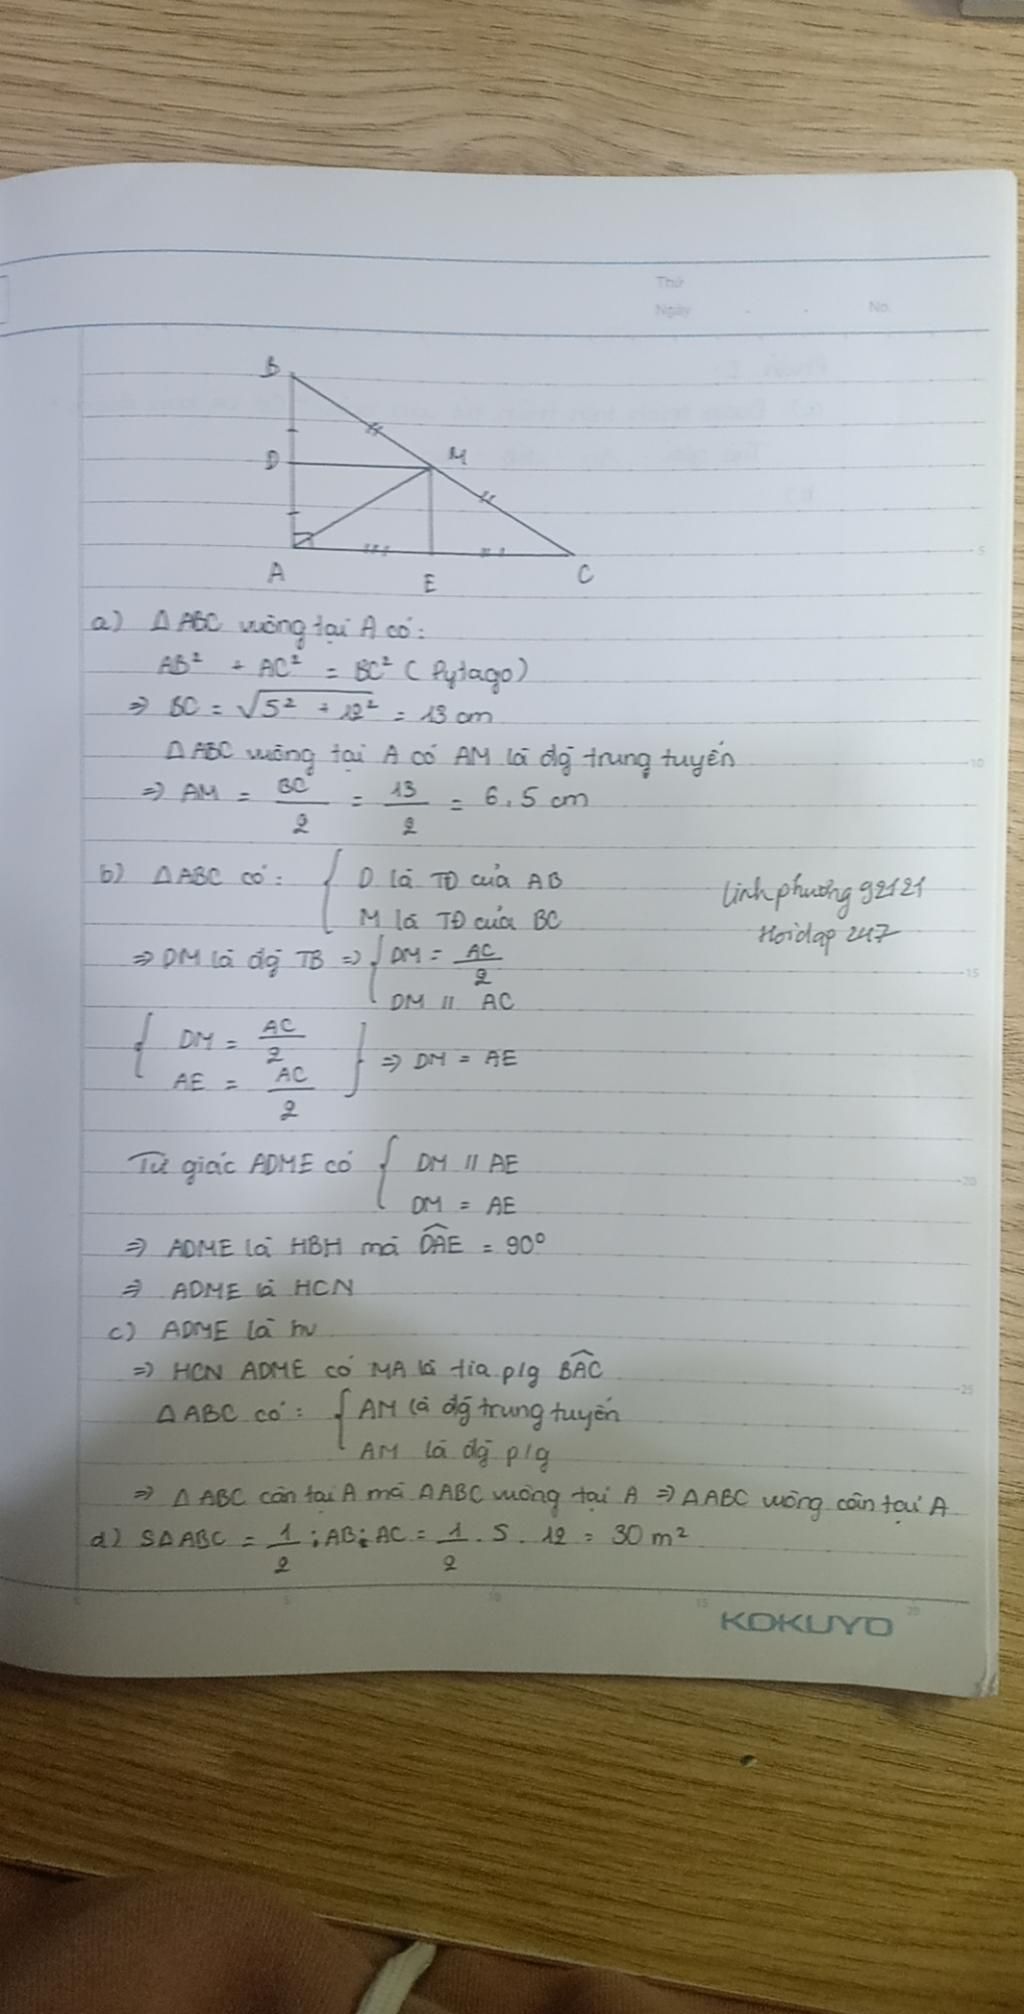 Thứ
Ngày
No.
B
D
M
A
E
C
a) Δ ABC vuông tại A có:
AB² + AC² = BC² (Pytago)
⇒ BC = √5² + 12² = 13 cm
Δ ABC vuông tại A có AM là đg trung tuyến
⇒ AM = BC/2 = 13/2 = 6,5 cm
b) Δ ABC có: { D là TĐ của AB
M là TĐ của BC
linhphuong92121
Hoidap 247
⇒ DM là đg TB ⇒ { DM = AC/2
DM // AC
{ DM = AC/2
AE = AC/2 } ⇒ DM = AE
Tứ giác ADME có { DM // AE
DM = AE
⇒ ADME là HBH mà DAE = 90°
⇒ ADME là HCN
c) ADME là hv
⇒ HCN ADME có MA là tia p/g BAC
Δ ABC có: { AM là đg trung tuyến
AM là đg p/g
⇒ Δ ABC cân tại A mà Δ ABC vuông tại A ⇒ Δ ABC vuông cân tại A
d) SΔABC = 1/2 . AB . AC = 1/2 . 5 . 12 = 30 m²
5
10
15
20
25
5
10
15
20
KOKUYO